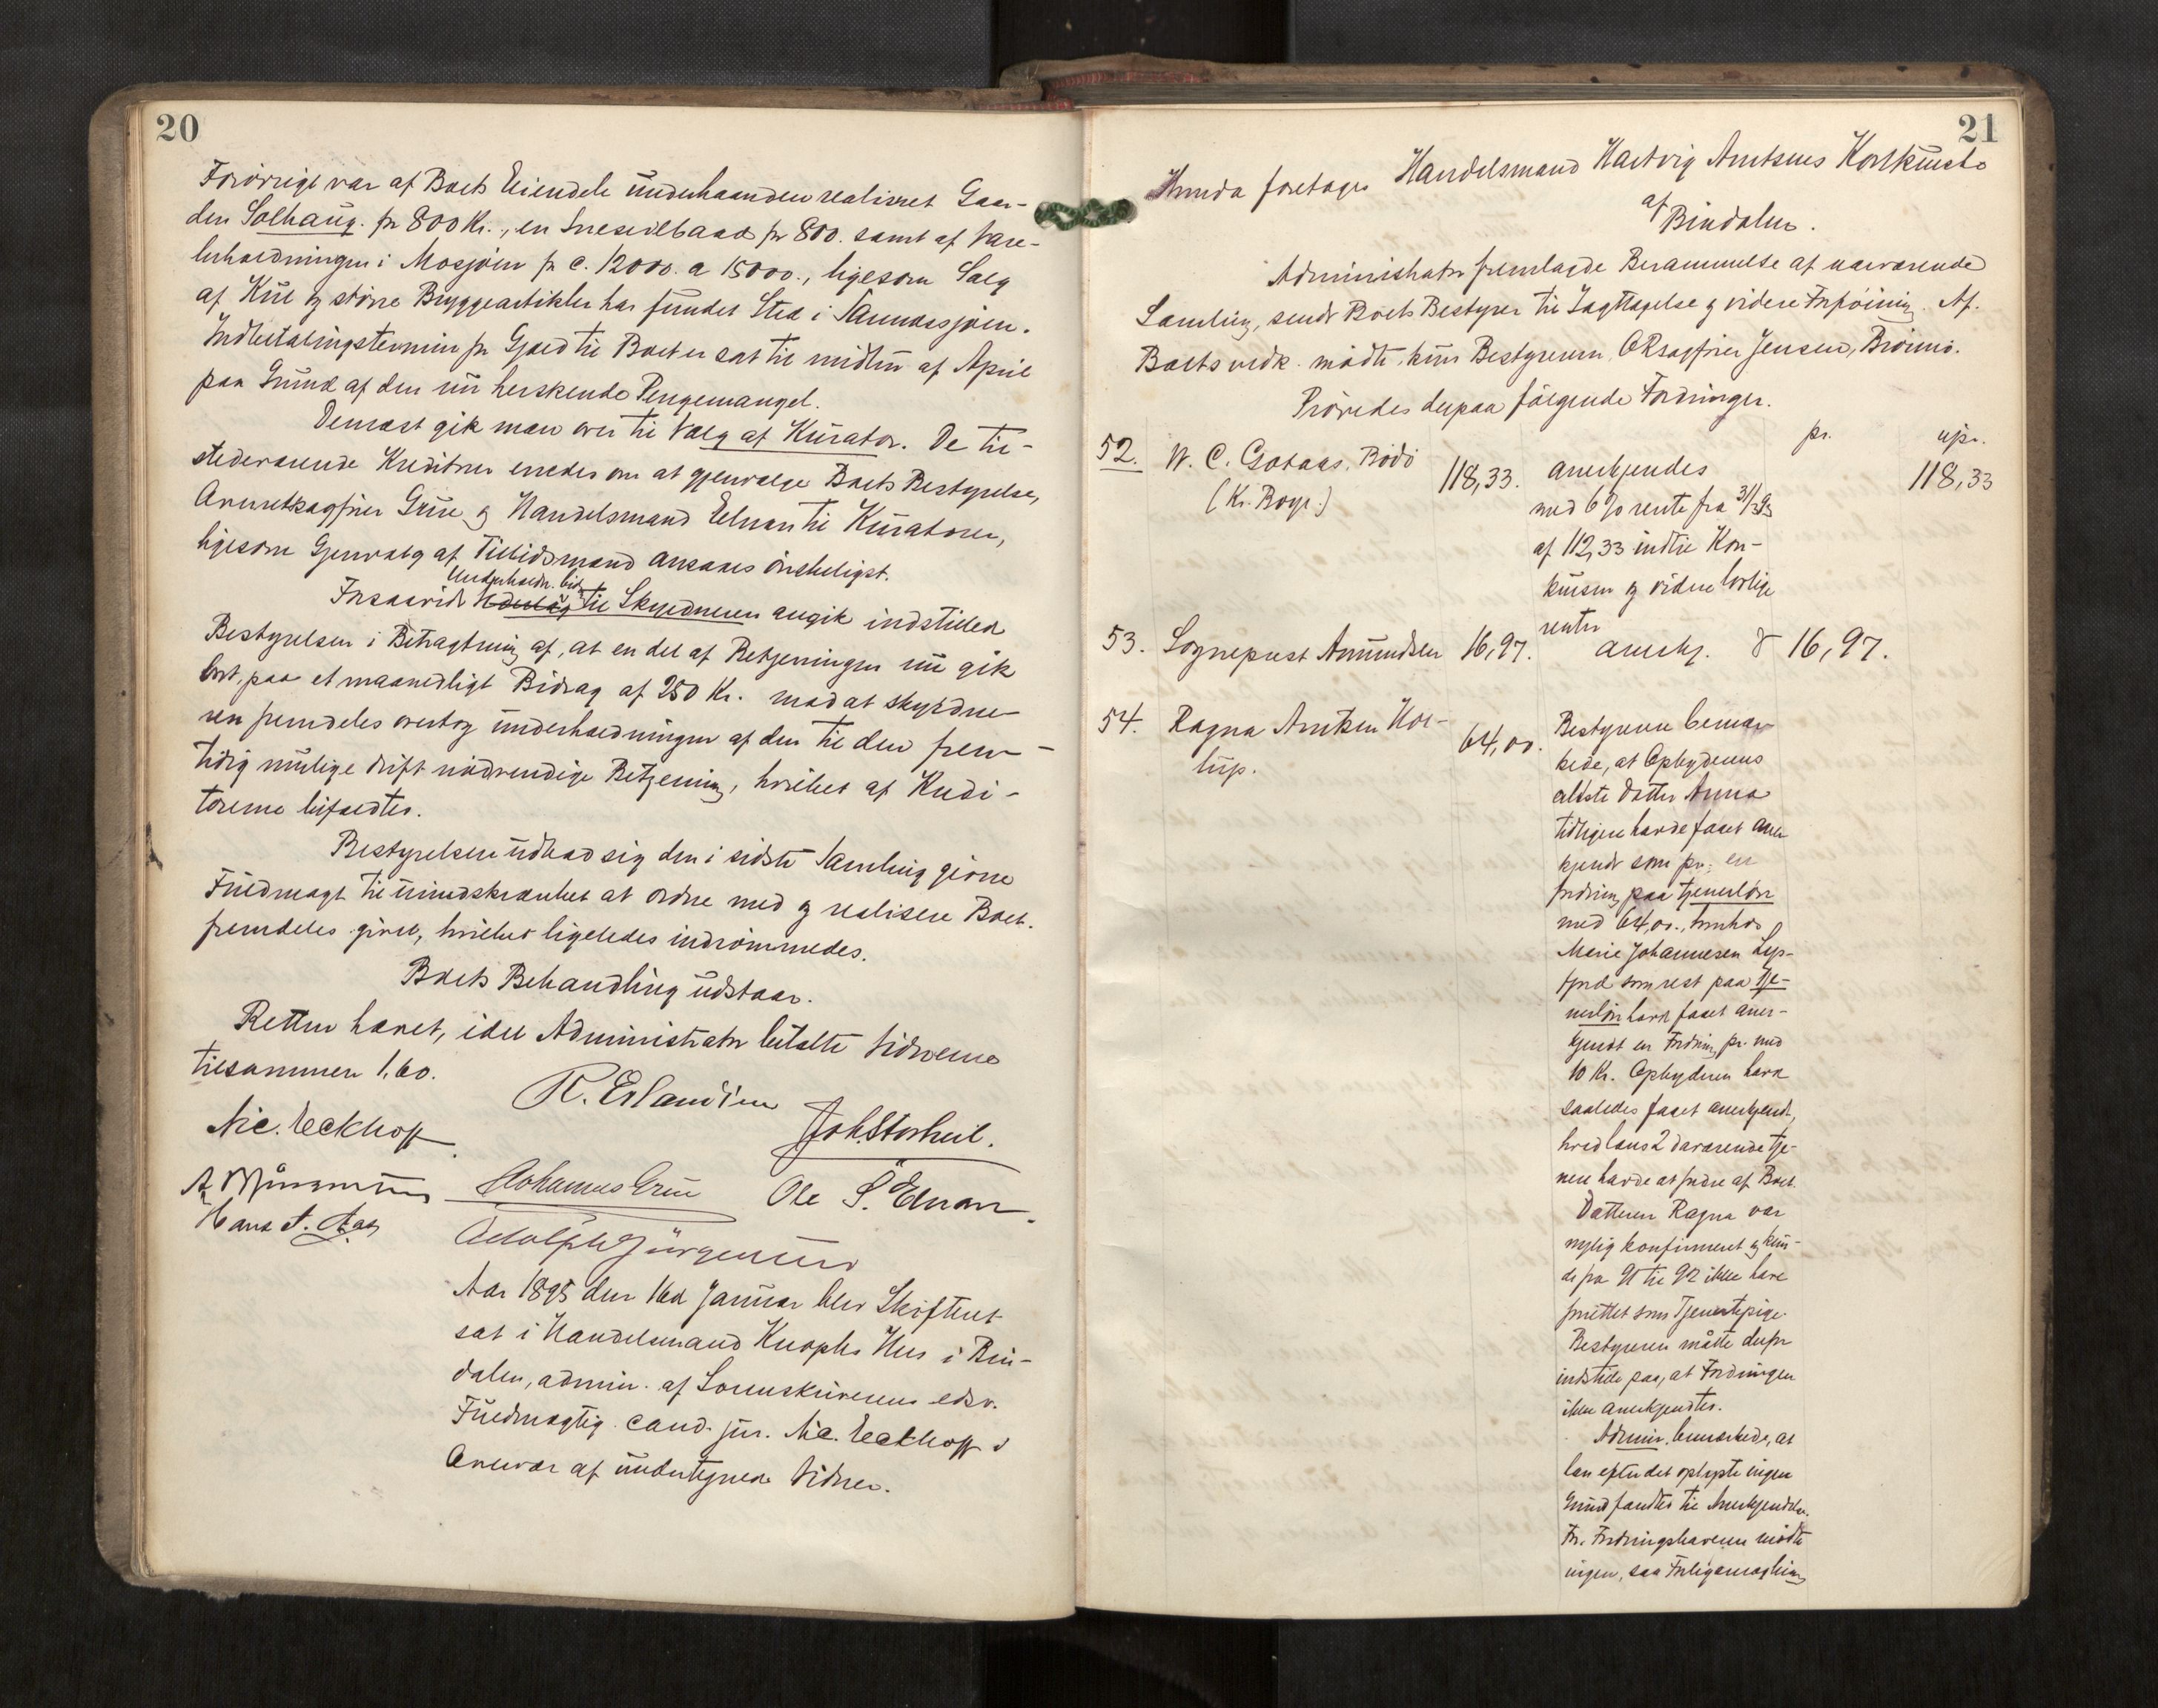 20
Forøvrigt var af Boets Eiendele underhaanden realiseret Gaar-
den Solhaug. for 800 Kr., en Snesildbaad for 800. samt af Vare-
beholdningen i Mosjøen for c. 12000. a 15000., ligesom Salg
af Kul og større Bryggeartikler har fundet Sted i Sannessjøen.
Indbetalingstermin for Gjæld til Boet er sat til midten af April
paa Grund af den nu herskende Pengemangel.
Dernæst gik man over til Valg af Kurator. De til-
stedeværende Kreditorer enedes om at gjenvælge Boets Bestyrelse,
Overretssagfører Grue og Handelsmand Elnan til Kuratorer,
ligesom Gjenvalg af Tillidsmand ansaaes ønskeligst.
Underholdn. bid
Forsaavidt til Skyldneren angik indstilled
Bestyrelsen i Betragtning af, at en del af Betjeningen nu gik
bort, paa et maanedligt Bidrag af 250 Kr. mod at skyldne-
ren fremdeles overtog underholdningen af den til den frem-
tidig mulige drift nødvendige Betjening, hvilket af Kredi-
torerne bifaldtes.
Bestyrelsen udbad sig den i sidste Samling givne
Fuldmagt til uindskrænket at ordne med og realisere Boet.
fremdeles givet, hvilket ligeledes indrømmedes.
Boets Behandling udstaar.
Retten hævet, idet Administrator betalte Vidnerne
tilsammen 1,60.
R. Erlandsen
Nic. Eeckhoff
Joh. Storheil.
Johannes Grue
Ole S. Elnan.
Hans A. Aas
Adolph Jürgensen
Aar 1895 den 16d Januar blev Skifteret
sat i Handelsmand Knophs Hus i Bin-
dalen, admin. af Sorenskriverens edsv.
Fuldmægtig cand. jur. Nic. Eeckhoff i
Overvær af undertegnede Vidner.
21
Hvorda foretages Handelsmand Hartvig Arntsens Konkursbo
af
Bindalen.
Administrator fremlagde Berammelse af nærværende
Samling, sendt Boets Bestyrer til Iagttagelse og videre Forføining. Af.
Boets vedk. mødte kun Bestyreren, ORsagfører Jensen, Brønnø.
Prøvedes derpaa følgende Fordringer.
pr. upr.
52. W. C. Gotaas, Bodø 118,33. anerkjendes 118,33
(Kr. Boyr.) med 6% rente fra 31/3 93
af 112,33 indtil Kon-
kursen og videre lovlige
renter
53. Sogneprest Amundsen 16,97. anerkj. d 16,97.
54. Ragna Arntsen Hol- Bestyreren bemær-
lup. 64,00. kede, at Opbyderens
ældste datter Anna
tidligere havde faaet aner
kjendt som pr. en
fordring paa tjenerløn
med 64,00., hvorhos
Marie Johannesen Lys-
fjord som rest paa Tje-
nerløn havde faaet aner-
kjendt en Fordring pr. med
10 Kr. Opbyderen havde
saaledes faaet anerkjendt,
hvad hans 2 daværende tje-
nere havde at fordre af Boet.
Datteren Ragna var
nylig konfirmeret og kun-
de fra 91 til 92 ikke have
fungeret som Tjenestepige.
Bestyreren måtte derfor
indstille paa, at Fordringen
ikke anerkjendtes.
Admin. bemærkede, at
han efter det oplyste ingen
Grund fandtes til Anerkjendelse.
For Fordringshaveren mødte
ingen, saa Forligsmægling